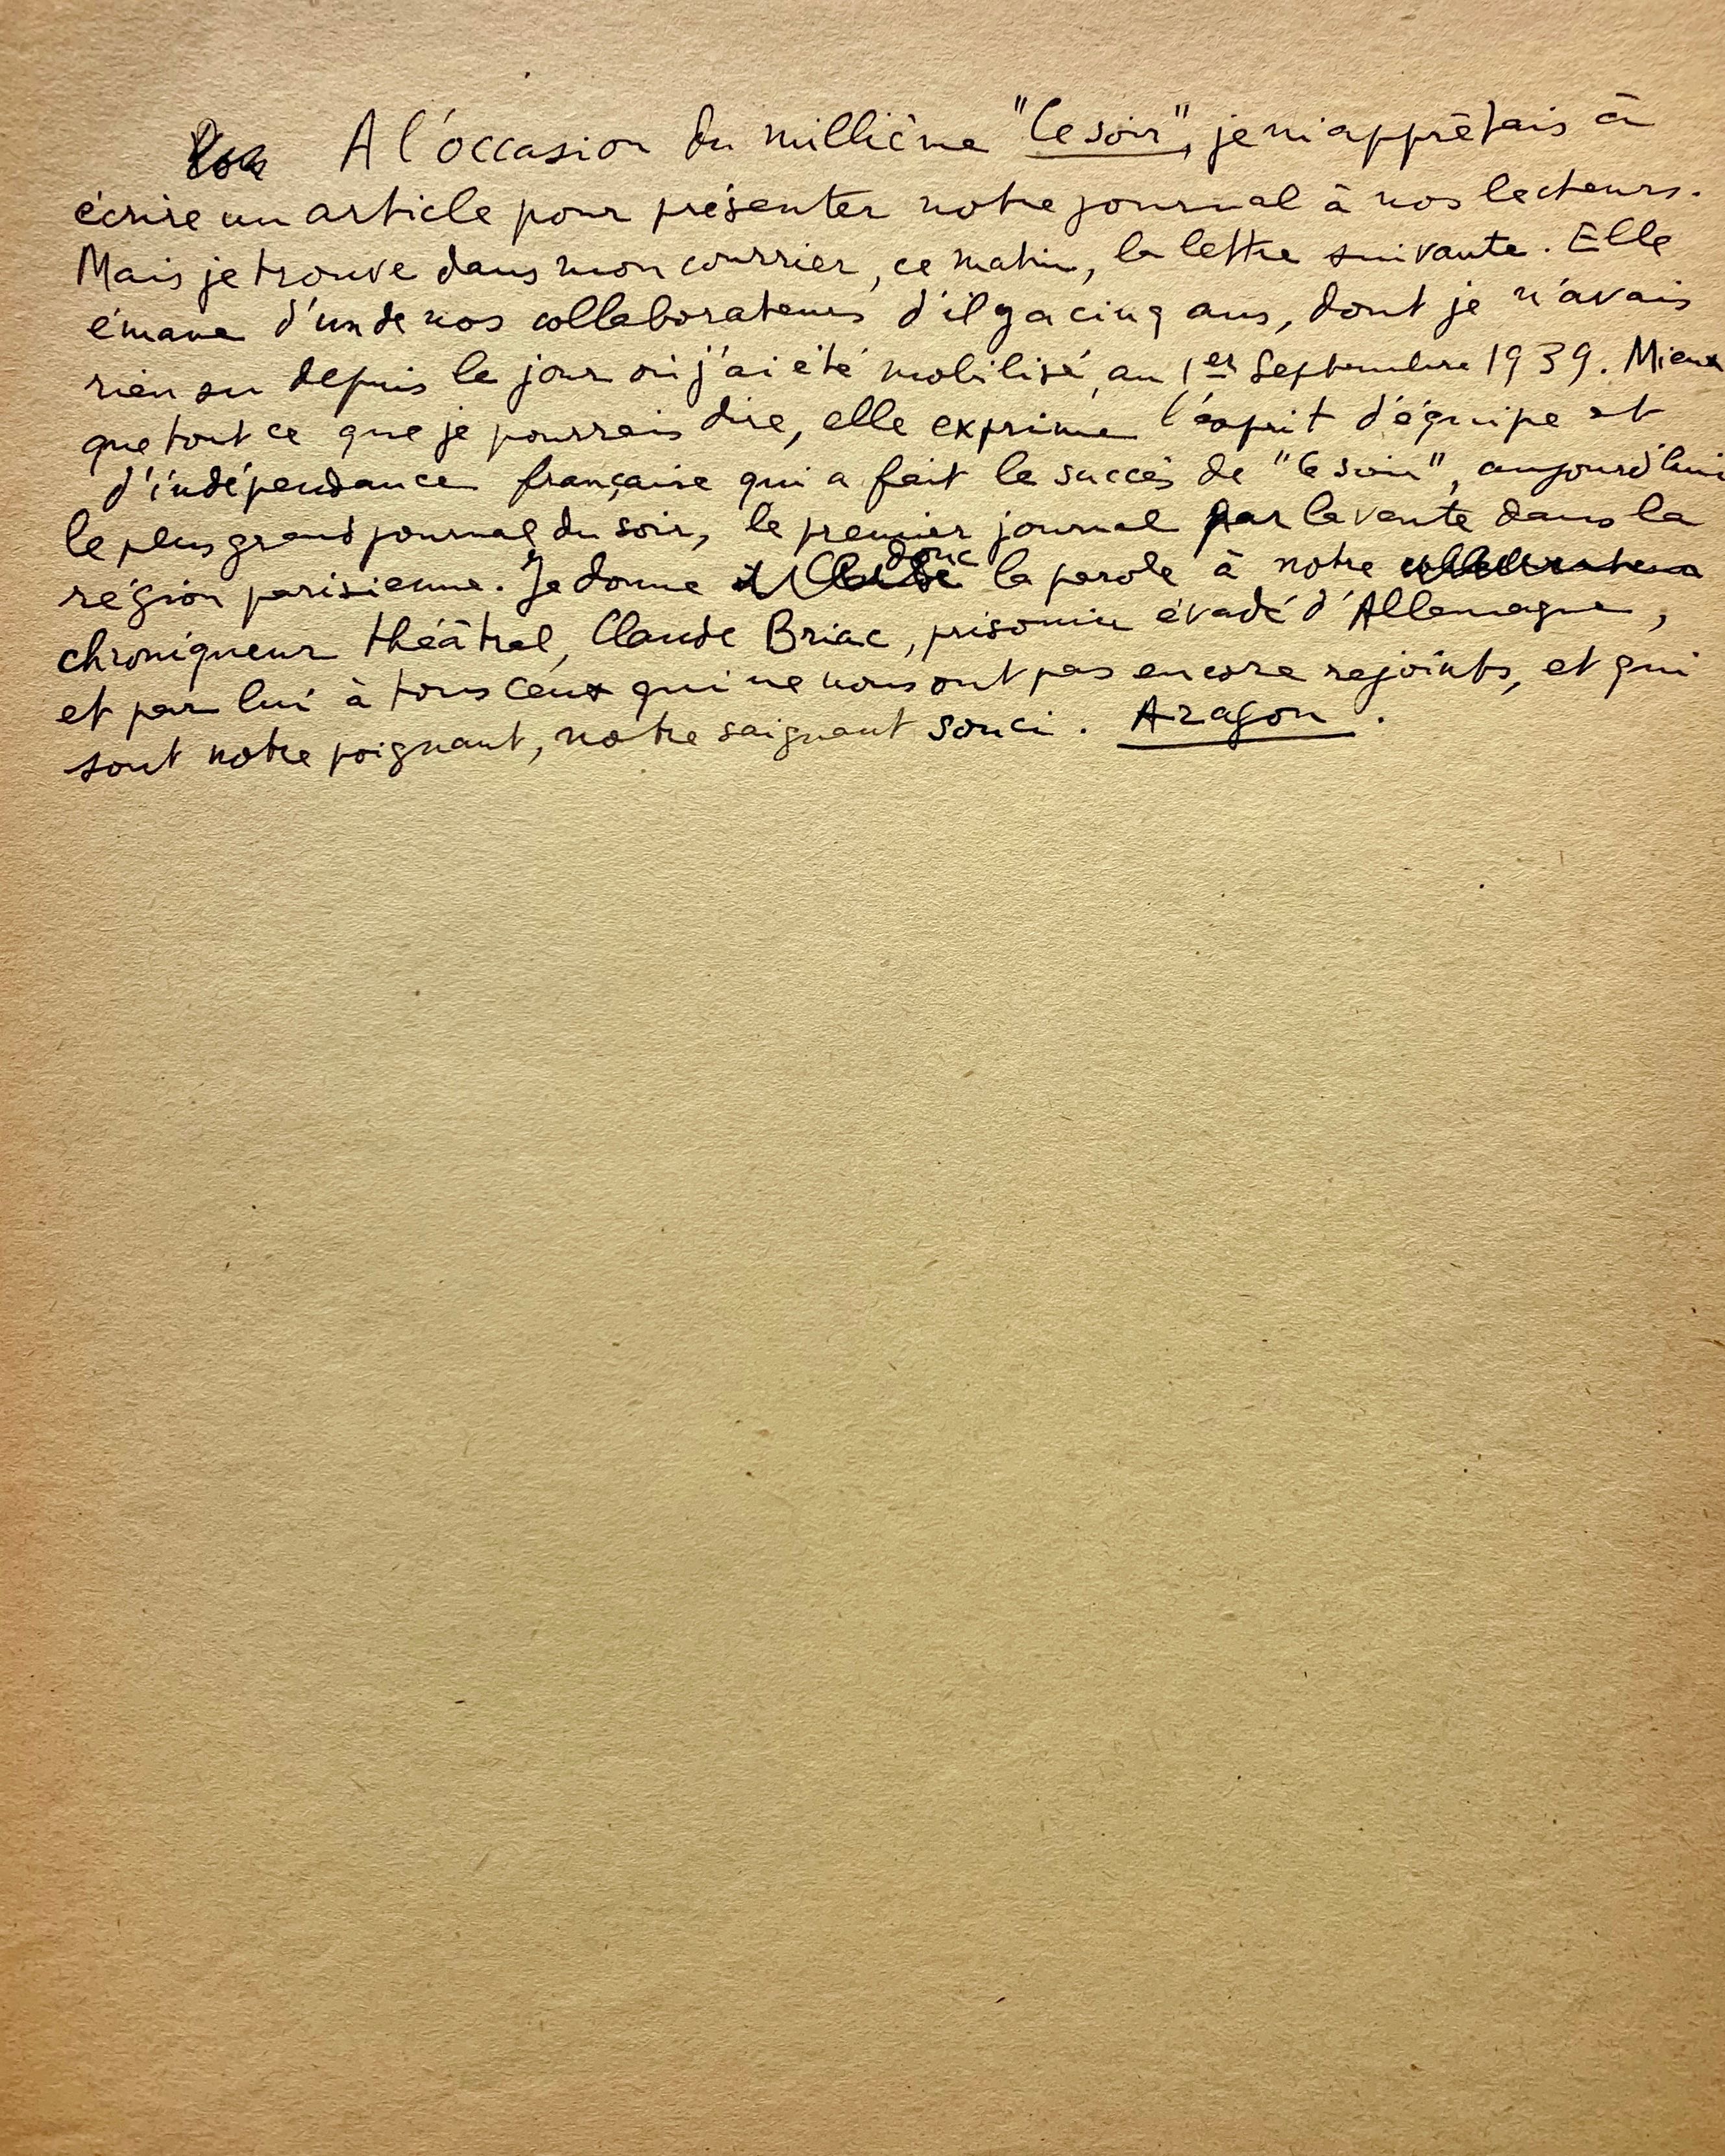 A l'occasion du millième "Ce soir", je m'apprêtais à
écrire un article pour présenter notre journal à nos lecteurs.
Mais je trouve dans mon courrier, ce matin, la lettre suivante. Elle
émane d'un de nos collaborateurs d'il y a cinq ans, dont je n'avais
rien su depuis le jour où j'ai été mobilisé, au 1er Septembre 1939. Mieux
que tout ce que je pourrais dire, elle exprime l'esprit d'équipe et
d'indépendance française qui a fait le succès de "Ce soir", aujourd'hui
le plus grand journal du soir, le premier journal par la vente dans la
région parisienne. Je donne donc la parole à notre collaborateur
chroniqueur théâtral, Claude Briac, prisonnier évadé d'Allemagne,
et par lui à tous ceux qui ne nous ont pas encore rejoints, et qui
sont notre poignant, notre saignant souci. Aragon.